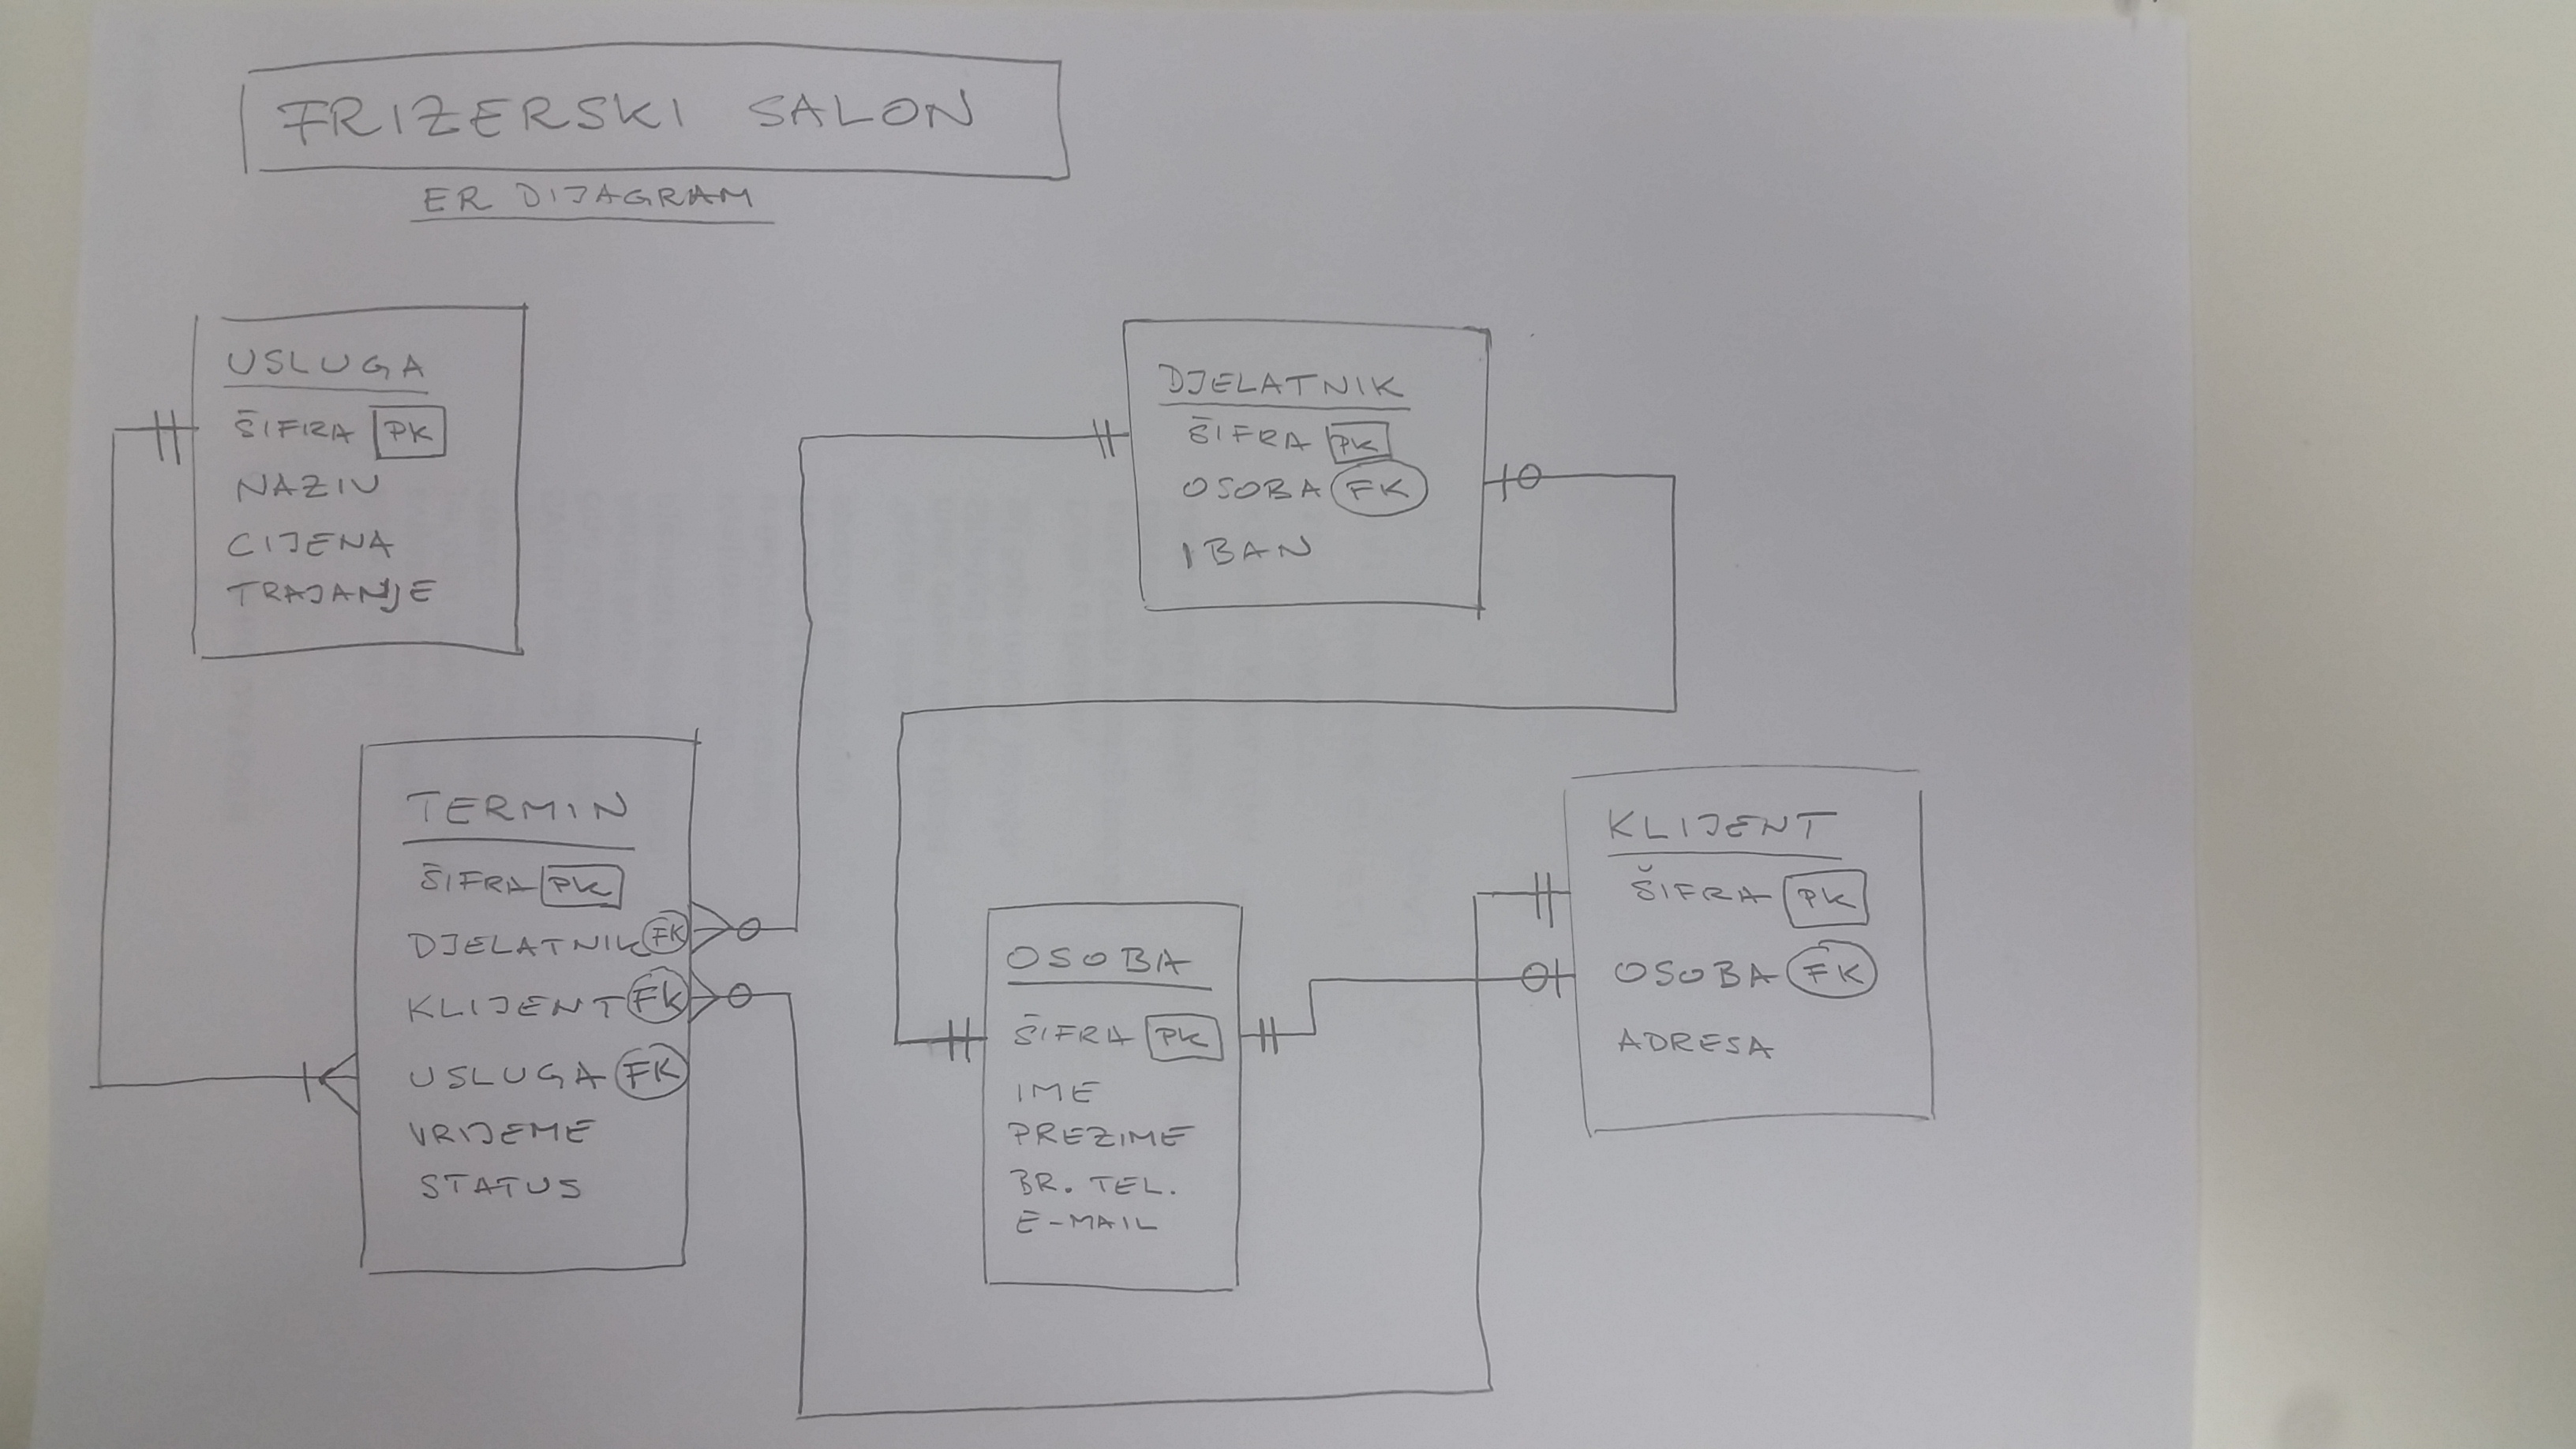 FRIZERSKI SALON
ER DIJAGRAM
USLUGA
ŠIFRA PK
NAZIV
CIJENA
TRAJANJE
DJELATNIK
ŠIFRA PK
OSOBA FK
IBAN
TERMIN
ŠIFRA PK
DJELATNIK FK
KLIJENT FK
USLUGA FK
VRIJEME
STATUS
OSOBA
ŠIFRA PK
IME
PREZIME
BR. TEL.
E-MAIL
KLIJENT
ŠIFRA PK
OSOBA FK
ADRESA